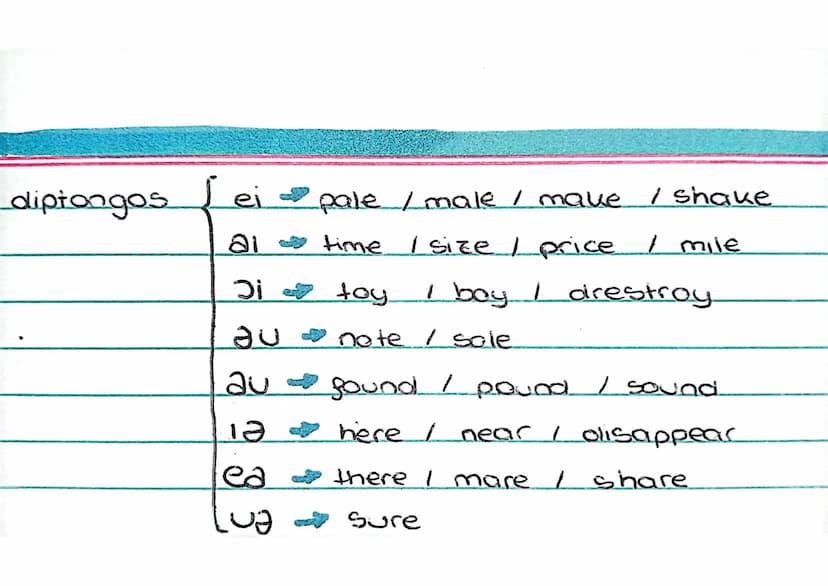 diptongos { ei → pale / male / make / shake
aı → time / size / price / mile
ɔi → toy / boy / drestroy
əu → note / sole
au → found / pound / sound
ıə → here / near / disappear
eə → there / mare / share
uə → sure